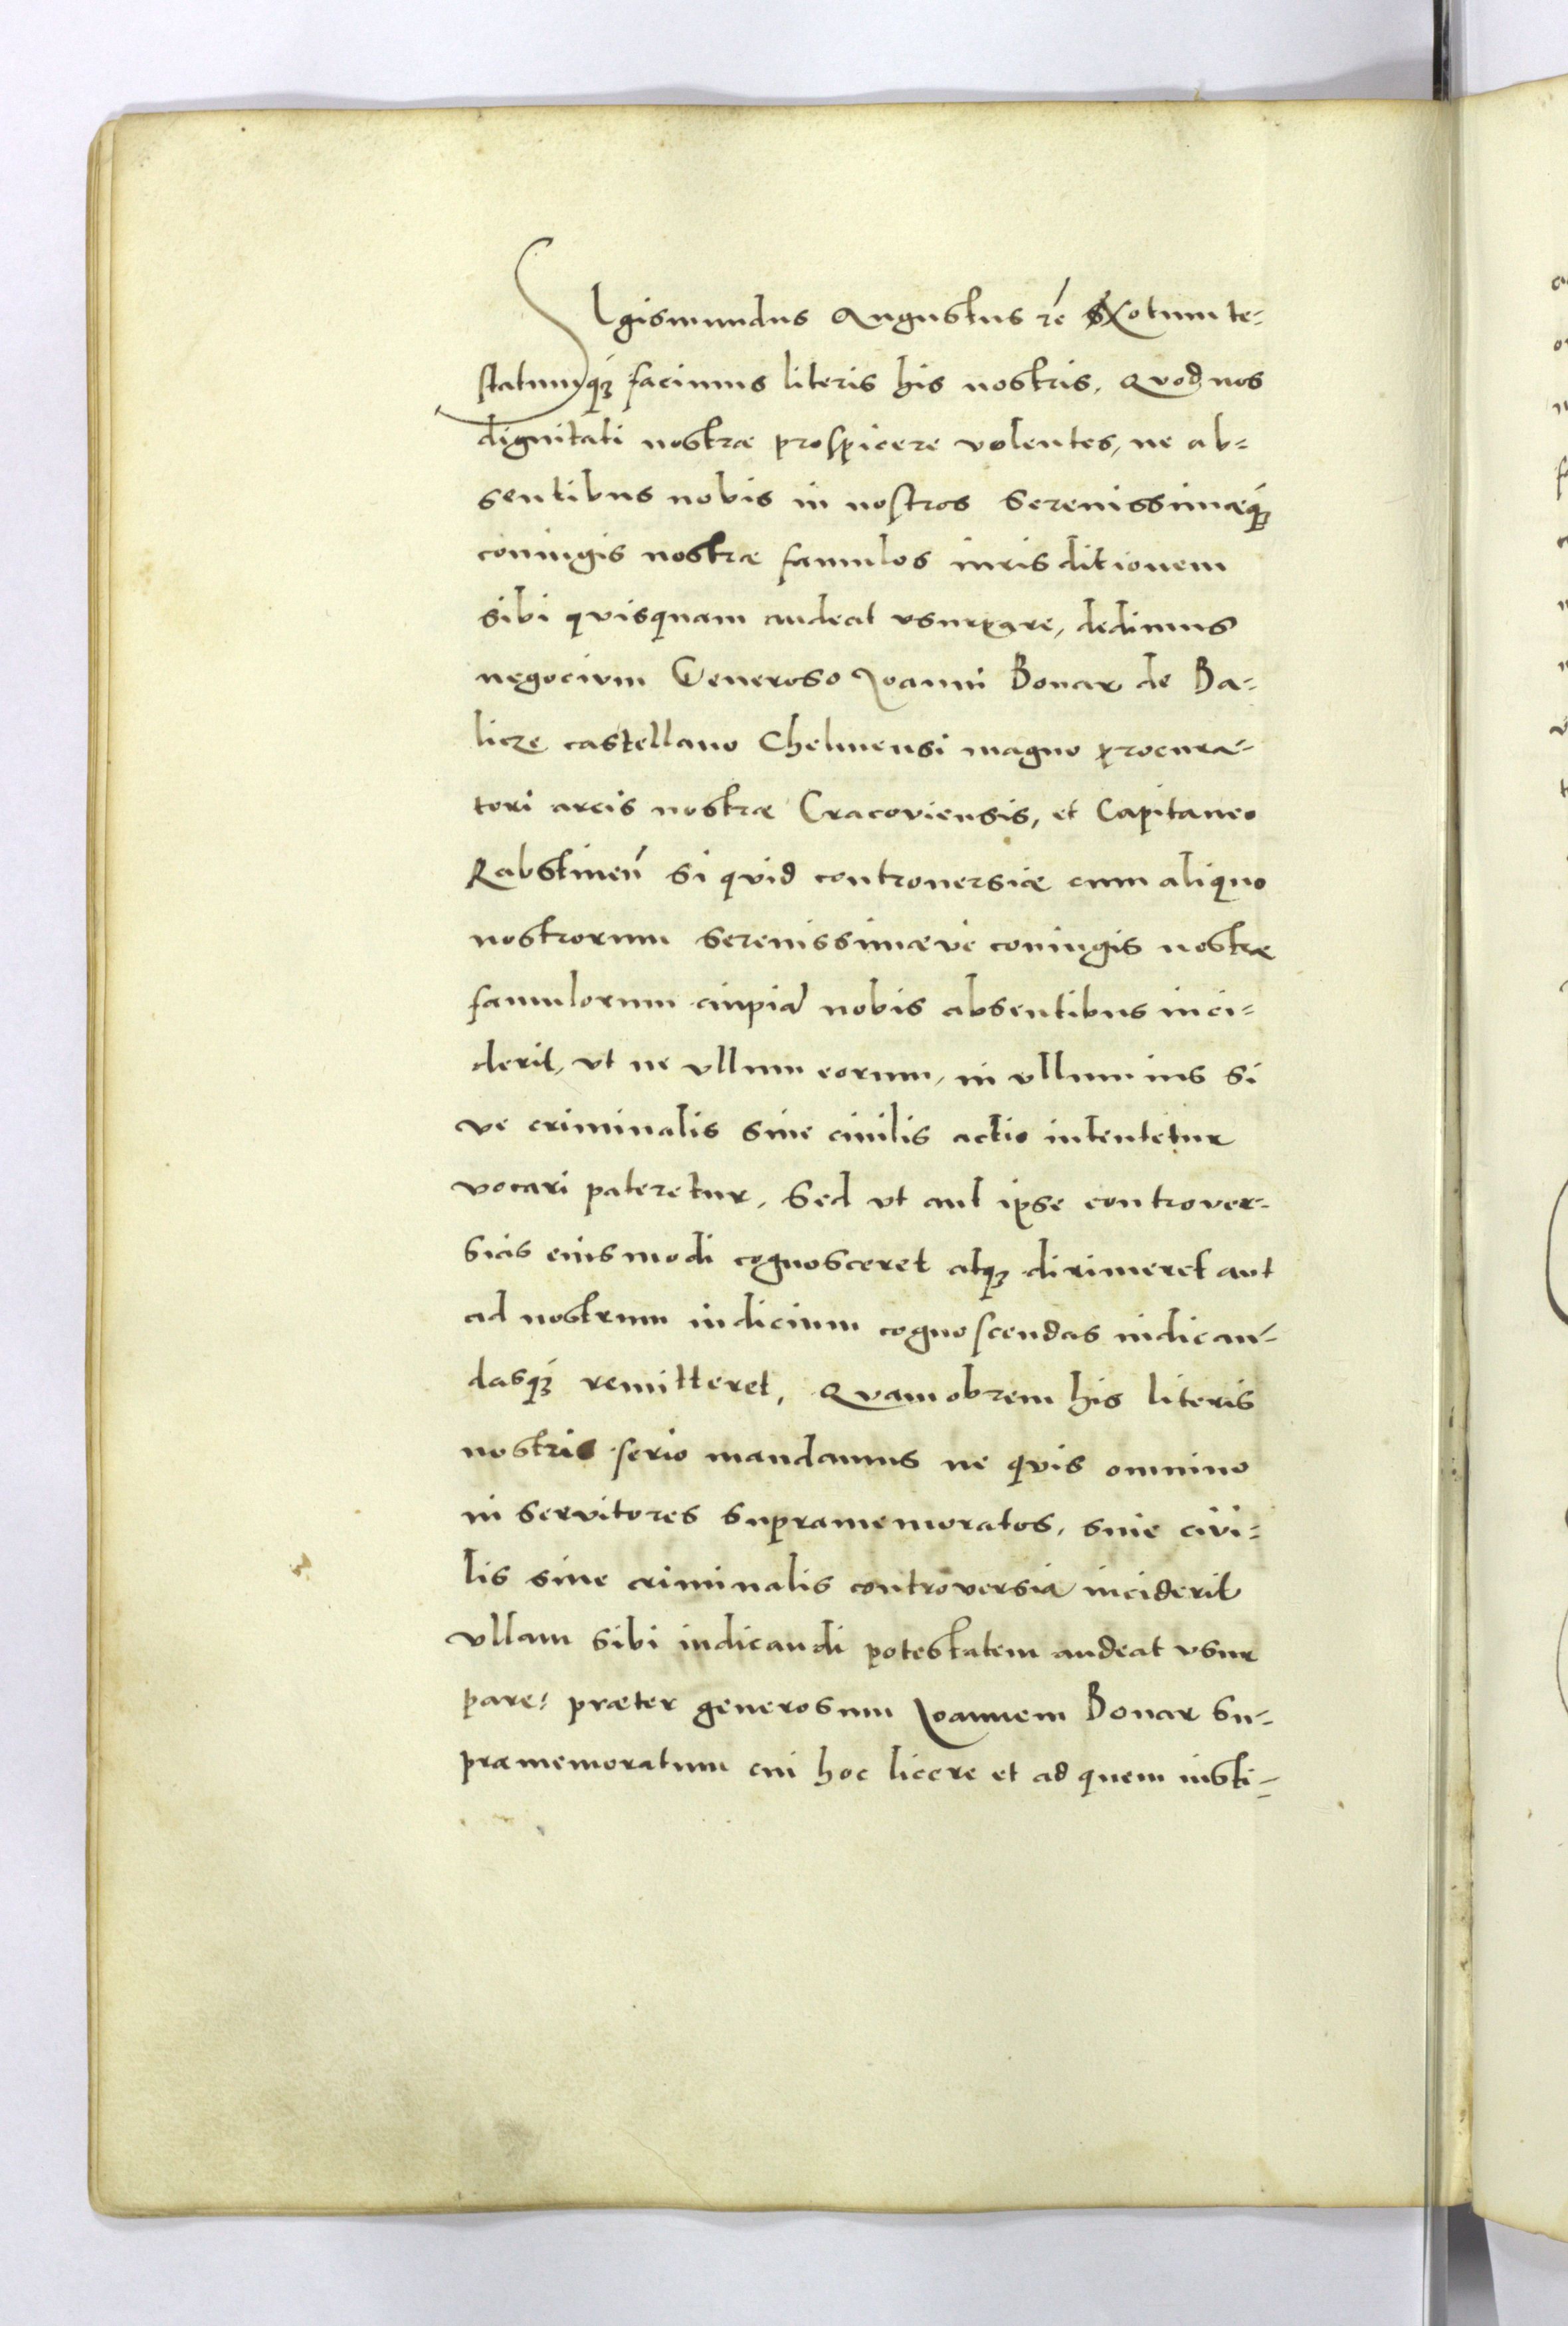 SIgismundus Augustus rē Notum te=
statumq́ȝ facimus literis his nostris, Quod nos
dignitati nostræ prospicere volentes, ne ab=
sentibus nobis in nostros Serenissimæq́ȝ
coniugis nostræ famulos iurisditionem
sibi quisquam audeat vsurpare, dedimus
negocium Generoso Joanni Bonar de Ba=
licze castellano Chelmensi magno procura=
tori arcis nostræ Cracoviensis, et Capitaneo
Rabstineń si quid controuersiæ cum aliquo
nostrorum Serenissimæve coniugis nostræ
famulorum cuipiā nobis absentibus inci=
derit, vt ne vllum eorum, in vllum ius si
ve criminalis siue ciuilis actio intentetur
vocari pateretur, Sed vt aut ipse controver=
sias eiusmodi cognosceret atqȝ dirimeret aut
ad nostrum iudicium cognoscendas iudican=
dasq́ȝ remitteret, Quamobrem his literis
nostris serio mandamus ne quis omnino
in servitores supramemoratos, siue civi=
lis siue criminalis controversia inciderit
vllam sibi iudicandi potestatem audeat vsur
pare: præter generosum Joannem Bonar su=
pramemoratum cui hoc licere et ad quem iusti=